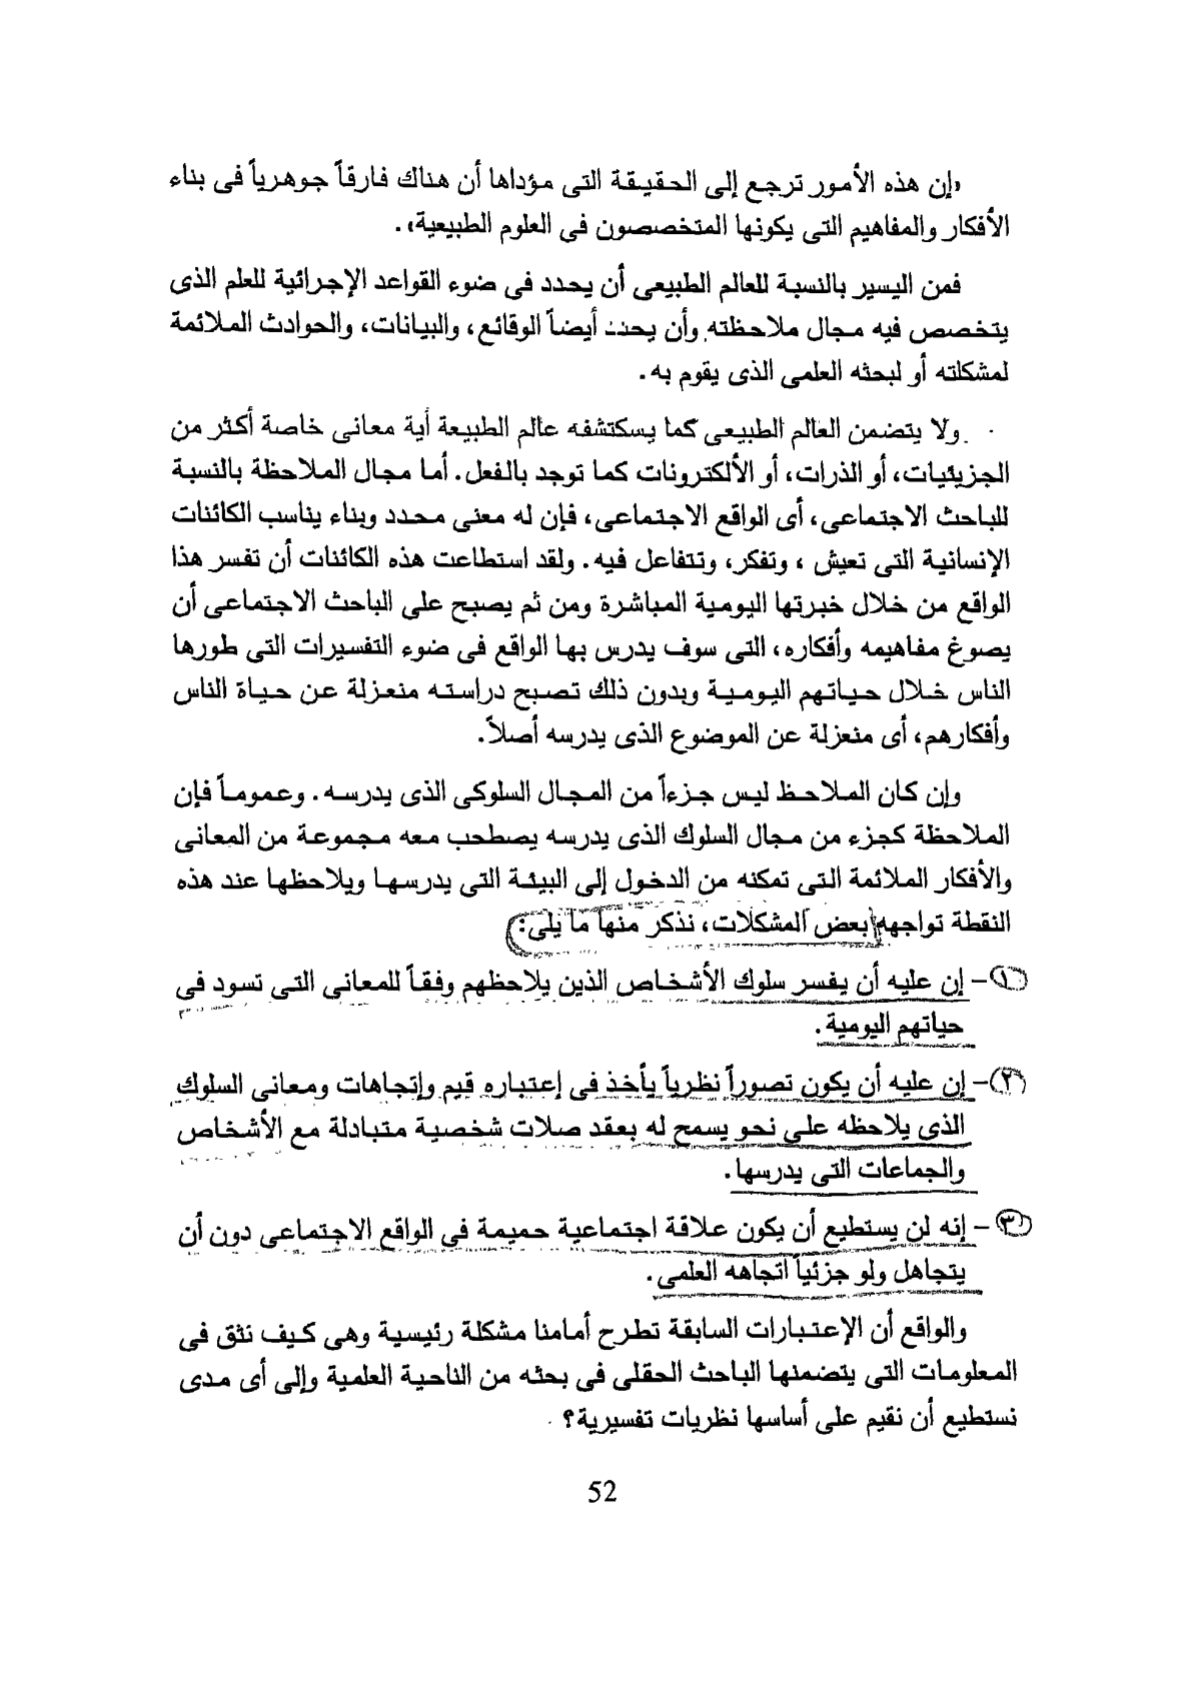 «إن هذه الأمور ترجع إلى الحقيقة التى مؤداها أن هناك فارقاً جوهرياً فى بناء
الأفكار والمفاهيم التى يكونها المتخصصون فى العلوم الطبيعية».
فمن اليسير بالنسبة للعالم الطبيعى أن يحدد فى ضوء القواعد الإجرائية للعلم الذى
يتخصص فيه مجال ملاحظته وأن يحدد أيضاً الوقائع، والبيانات، والحوادث الملائمة
لمشكلته أو لبحثه العلمى الذى يقوم به.
ولا يتضمن العالم الطبيعى كما يسكتشفه عالم الطبيعة أية معانى خاصة أكثر من
الجزيئيات، أو الذرات، أو الألكترونات كما توجد بالفعل. أما مجال الملاحظة بالنسبة
للباحث الاجتماعى، أى الواقع الاجتماعى، فإن له معنى محدد وبناء يناسب الكائنات
الإنسانية التى تعيش ، وتفكر، وتتفاعل فيه. ولقد استطاعت هذه الكائنات أن تفسر هذا
الواقع من خلال خبرتها اليومية المباشرة ومن ثم يصبح على الباحث الاجتماعى أن
يصوغ مفاهيمه وأفكاره، التى سوف يدرس بها الواقع فى ضوء التفسيرات التى طورها
الناس خلال حياتهم اليومية وبدون ذلك تصبح دراسته منعزلة عن حياة الناس
وأفكارهم، أى منعزلة عن الموضوع الذى يدرسه أصلاً.
وإن كان الملاحظ ليس جزءاً من المجال السلوكى الذى يدرسه. وعموماً فإن
الملاحظة كجزء من مجال السلوك الذى يدرسه يصطحب معه مجموعة من المعانى
والأفكار الملائمة التى تمكنه من الدخول إلى البيئة التى يدرسها ويلاحظها عند هذه
النقطة تواجهه بعض المشكلات، نذكر منها ما يلى:
١- إن عليه أن يفسر سلوك الأشخاص الذين يلاحظهم وفقاً للمعانى التى تسود فى
حياتهم اليومية.
٢- إن عليه أن يكون تصوراً نظرياً يأخذ فى إعتباره قيم وإتجاهات ومعانى السلوك
الذى يلاحظه على نحو يسمح له بعقد صلات شخصية متبادلة مع الأشخاص
والجماعات التى يدرسها.
٣- إنه لن يستطيع أن يكون علاقة اجتماعية حميمة فى الواقع الاجتماعى دون أن
يتجاهل ولو جزئياً اتجاهه العلمى.
والواقع أن الإعتبارات السابقة تطرح أمامنا مشكلة رئيسية وهى كيف نثق فى
المعلومات التى يتضمنها الباحث الحقلى فى بحثه من الناحية العلمية وإلى أى مدى
نستطيع أن نقيم على أساسها نظريات تفسيرية؟
52